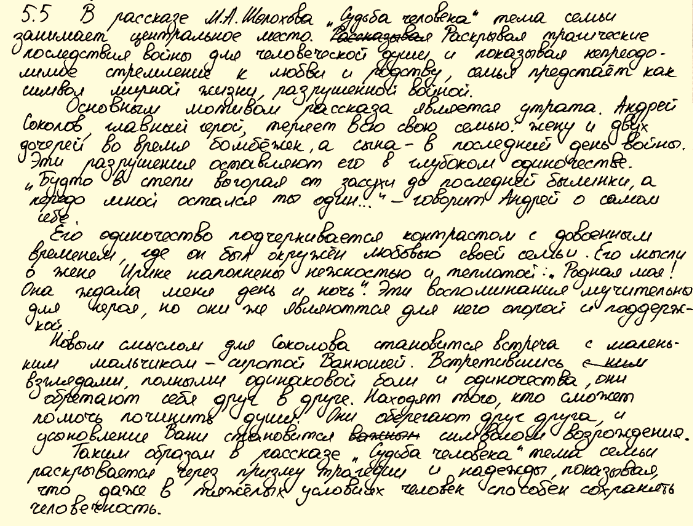 5.5 В рассказе М.А. Шолохова „Судьба человека" тема семьи
занимает центральное место. Рассказывая Раскрывая трагические
последствия войны для человеческой души и показывая непреодо-
лимое стремление к любви и родству, семья предстаёт как
символ мирной жизни, разрушенной войной.
Основным мотивом рассказа является утрата. Андрей
Соколов, главный герой, теряет всю свою семью: жену и двух
дочерей во время бомбёжек, а сына – в последний день войны.
Эти разрушения оставляют его в глубоком одиночестве.
„Будто в степи выгорая от засухи до последней былинки, а
передо мной остался ты один..." – говорит Андрей о самом
себе
Его одиночество подчеркивается контрастом с довоенным
временем, где он был окружён любовью своей семьи. Его мысли
о жене Ирине наполнены нежностью и теплотой: „Родная моя!
Она ждала меня день и ночь". Эти воспоминания мучительно
для героя, но они же являются для него опорой и поддерж-
кой.
Новым смыслом для Соколова становится встреча с малень-
ким мальчиком – сиротой Ванюшей. Встретившись с ним
взглядами, полными одинаковой боли и одиночества, они
обретают себя друг в друге. Находят того, кто сможет
помочь починить души. Они оберегают друг друга, и
усыновление Вани становится важным символом возрождения.
Таким образом в рассказе „Судьба человека" тема семьи
раскрывается через призму трагедии и надежды, показывая,
что даже в тяжёлых условиях человек способен сохранить
человечность.